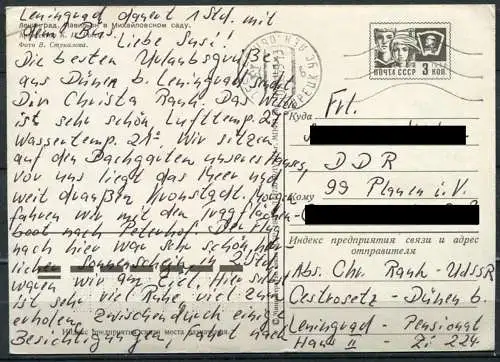 Leningrad dauert 1 Std. mit
dem Bus.
Ленинград. Павильон в Михайловском саду.
Фото В. Стукалова.
Liebe Susi!
Die besten Urlaubsgrüße
aus Dünen b. Leningrad sendet
Dir Christa Rank. Das Wetter
ist sehr schön, Lufttemp. 27
Wassertemp. 21°. Wir sitzen
auf den Dachgarten unseres Hauses,
vor uns liegt das Meer und
weit draußen Kronstadt. Morgen
fahren wir mit den Tragflächen-
boot nach Peterhof. Der Flug
nach hier war sehr schön, herr-
licher Sonnenschein, in 2 Std.
waren wir am Ziel. Hier sind
ist sehr viel Ruhe, viel zum
erholen. Zwischendurch einige
Besichtigungen, Fahrt nach
Индекс предприятия связи места назначения
ПОЧТА СССР 3 КОП.
Куда
Frl.
DDR
Кому
99 Plauen i. V.
Индекс предприятия связи и адрес
отправителя
Abs. Chr. Rank - UdSSR
Cestrosetz - Dünen b.
Leningrad - Pensionat
Haus II - Zi 224